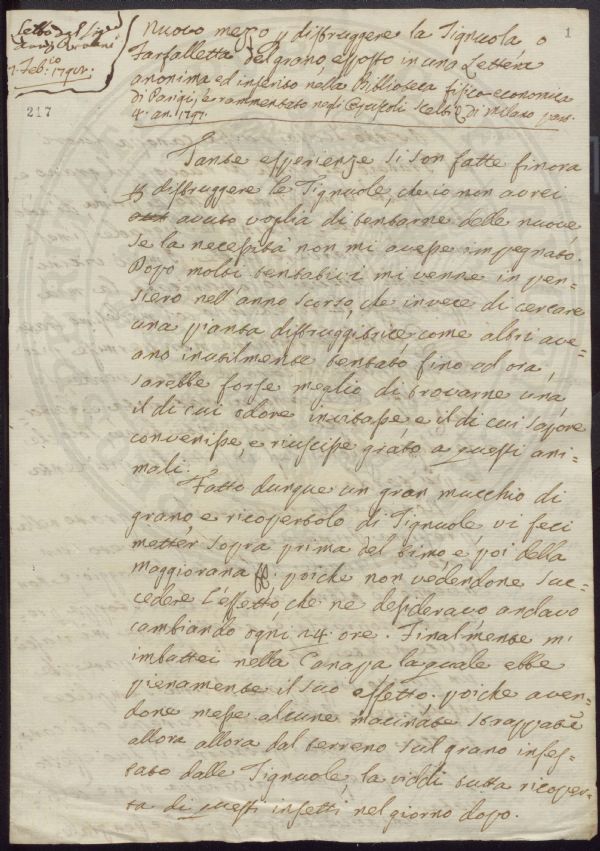 Letto dal Sigr
7. Febio 1792.
217
1
Nuovo mezzo p distruggere la Tignuola o
Farfalletta del grano esposto in una Lettera
anonima ed inserito nella Biblioteca fisico-economica
di Parigi, e rammentato negl'Opuscoli Scelti di Milano part.
4. an. 1791.
Tante esperienze si son fatte finora
p distruggere le Tignuole, che io non avrei
avuto voglia di tentarne delle nuove
se la necessità non mi avesse impegnato.
Dopo molti tentativi mi venne in pen=
siero nell'anno scorso, che invece di cercare
una pianta distruggitrice come altri ave=
ano inutilmente tentato fino ad ora,
sarebbe forse meglio di trovarne una
il di cui odore invitasse e il di cui sapore
convenisse, e riuscisse grato a questi ani=
mali.
Fatto dunque un gran mucchio di
grano e ricopertolo di Tignuole vi feci
metter sopra prima del timo, e poi della
maggiorana &. poiche non vedendone suc=
cedere l'effetto, che ne desideravo andavo
cambiando ogni 24 ore. Finalmente m'
imbattei nella Canapa la quale ebbe
pienamente il suo effetto. poiche aven=
done messe alcune strappate
allora allora dal terreno sul grano infes=
tato dalle Tignuole, la viddi tutta ricoper=
ta di questi insetti nel giorno dopo.